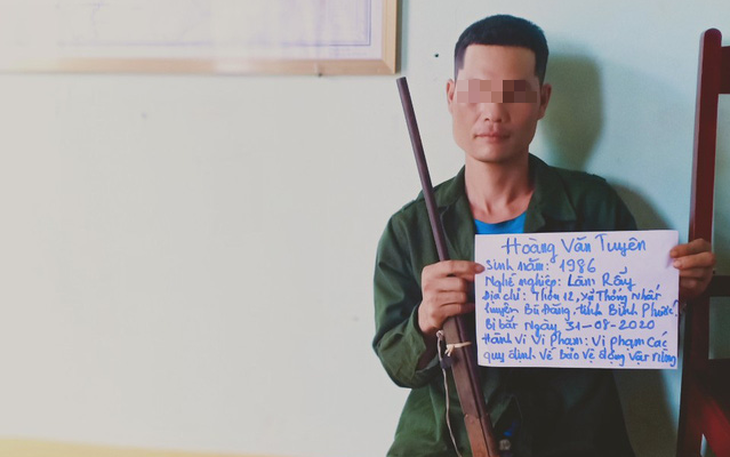 Hoàng Văn Tuyên
Sinh năm: 1986
Nghề nghiệp: Làm Rẫy
Địa chỉ: Thôn 12, xã Thống Nhất
huyện Bù Đăng, tỉnh Bình Phước
Bị bắt Ngày 31-08-2020
Hành Vi Vi Phạm: Vi phạm các
quy định về bảo vệ động vật rừng